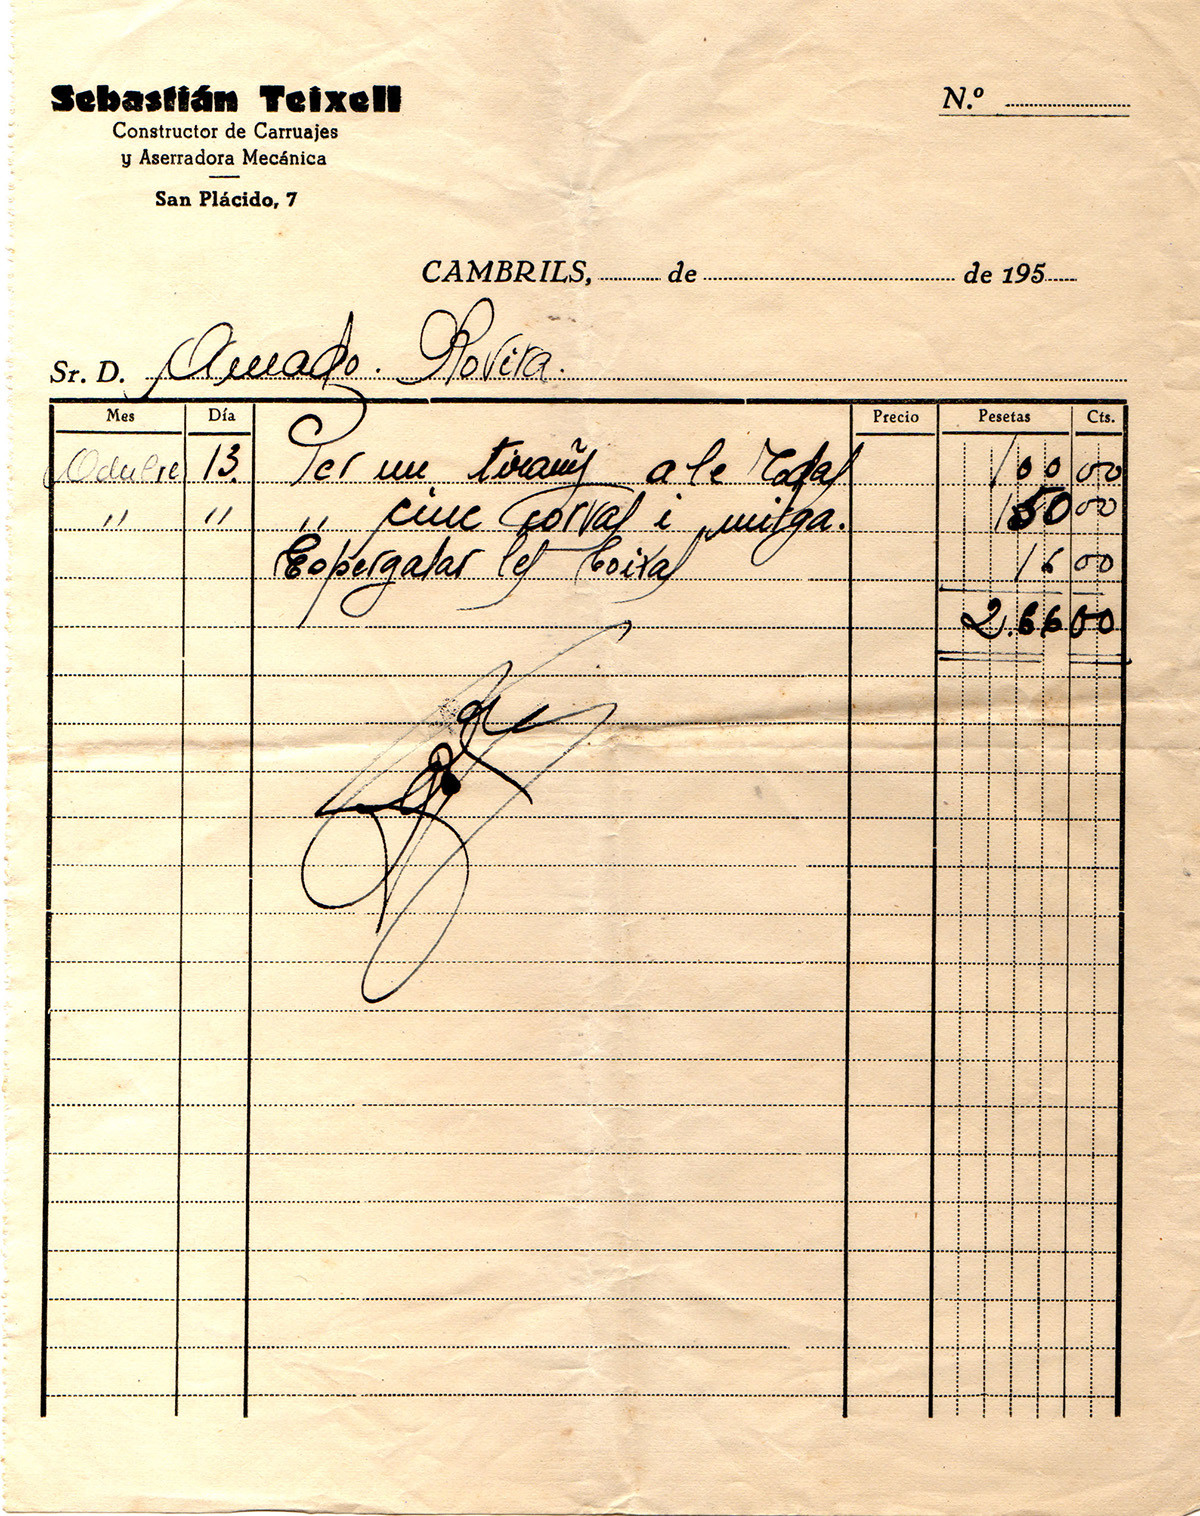 Sebastián Teixell
Constructor de Carruajes
y Aserradora Mecánica
San Plácido, 7
N.º
CAMBRILS, de de 195
Sr. D. Amado. Rovira.
Mes Día Precio Pesetas Cts.
Octubre 13. Per un tirany a le 100 00
" " " cinc i mitga. 150 00
les 16 00
2.66 00